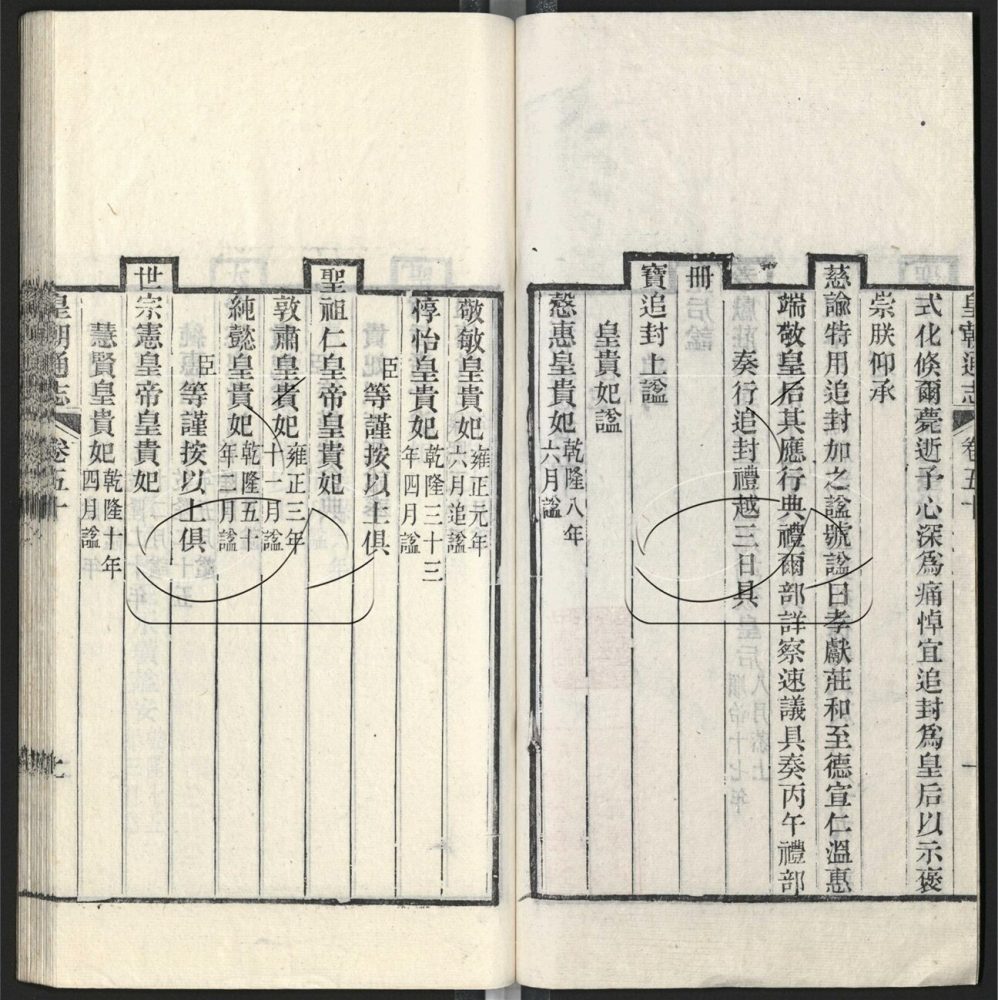 皇朝通志 卷五十
式化倏爾薨逝予心深爲痛悼宜追封爲皇后以示褒
崇朕仰承
慈諭特用追封加之諡號諡曰孝獻莊和至德宣仁溫惠
端敬皇后其應行典禮爾部詳察速議具奏丙午禮部
奏行追封禮越三日具
冊
寶追封上諡
皇貴妃諡
慤惠皇貴妃乾隆八年六月諡
敬敏皇貴妃雍正元年六月追諡
惇怡皇貴妃乾隆三十三年四月諡
臣等謹按以上俱
聖祖仁皇帝皇貴妃
敦肅皇貴妃雍正三年十一月諡
純懿皇貴妃乾隆五十年三月諡
臣等謹按以上俱
世宗憲皇帝皇貴妃
慧賢皇貴妃乾隆十年四月諡
皇朝通志 卷五十